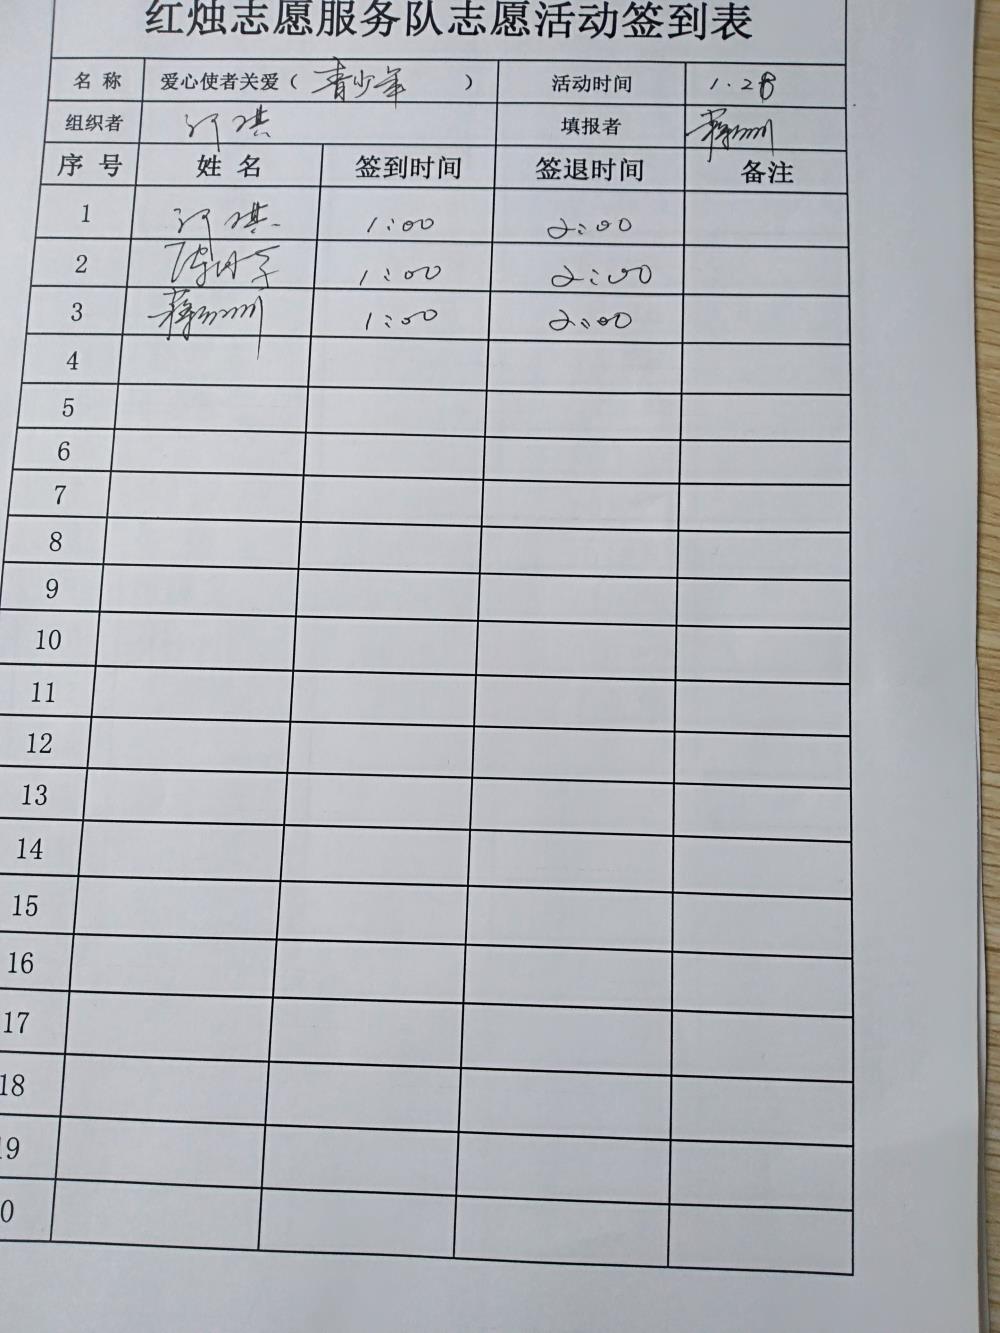 红烛志愿服务队志愿活动签到表
名称 爱心使者关爱（青少年） 活动时间 1.28
组织者 琪 填报者
序号 姓名 签到时间 签退时间 备注
1 琪 1:00 2:00
2 陈 1:00 2:00
3 1:00 2:00
4
5
6
7
8
9
10
11
12
13
14
15
16
17
18
19
0